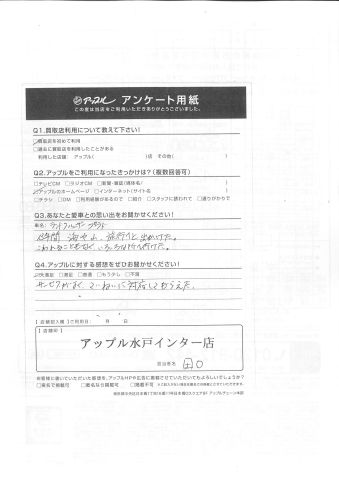 アップル アンケート用紙
この度は当店をご利用いただきありがとうございました。
Q1.買取店利用について教えて下さい!
買取店を初めて利用
□過去に買取店を利用したことがある
利用した店舗: アップル( )店 その他( )
Q2.アップルをご利用になったきっかけは?(複数回答可)
□テレビCM □ラジオCM □新聞・雑誌(媒体名: )
アップルのホームページ □インターネット(サイト名 )
□チラシ □DM □利用経験があるので □紹介 □スタッフに誘われて □通りがかりで
Q3.あなたと愛車との思い出をお聞かせください!
車名:ランドクルーザープラド
海や山、旅行へと出かけた。
こわれることもなく、いろいろな所へ行けた。
Q4.アップルに対する感想をぜひお聞かせください!
大満足 □満足 □普通 □もう少し □不満
サービスがよく、ていねいに対応してもらえた。
【店舗記入欄】ご利用日: 月 日
【店舗印】
アップル水戸インター店
担当者名
お客様に書いていただいた感想を、アップルHPや広告に掲載させていただいてもよろしいでしょうか?
□実名で掲載可 □匿名なら掲載可 □掲載不可